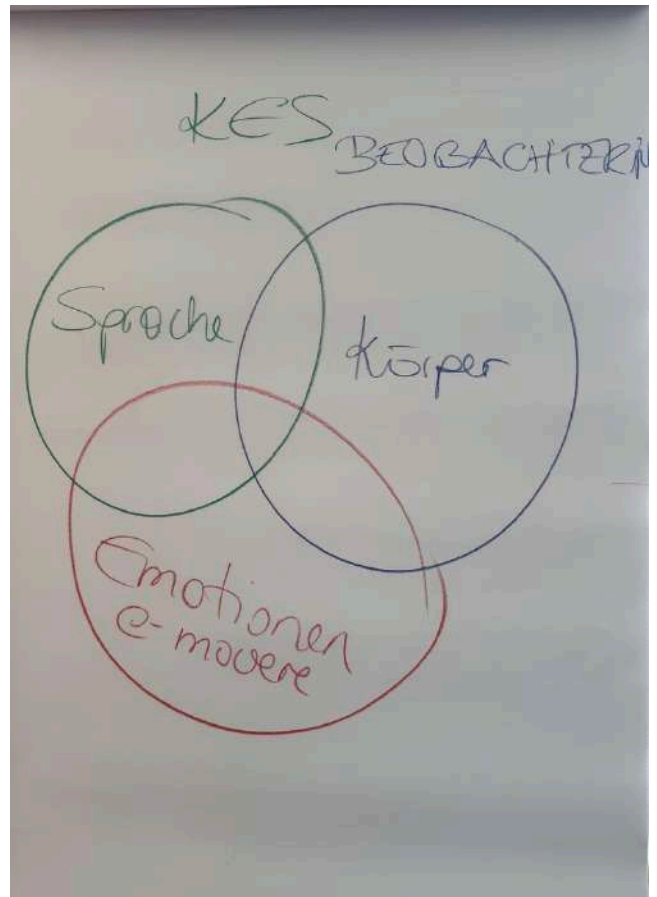 KES
BEOBACHTERIN
Sprache
Körper
Emotionen
e-movere